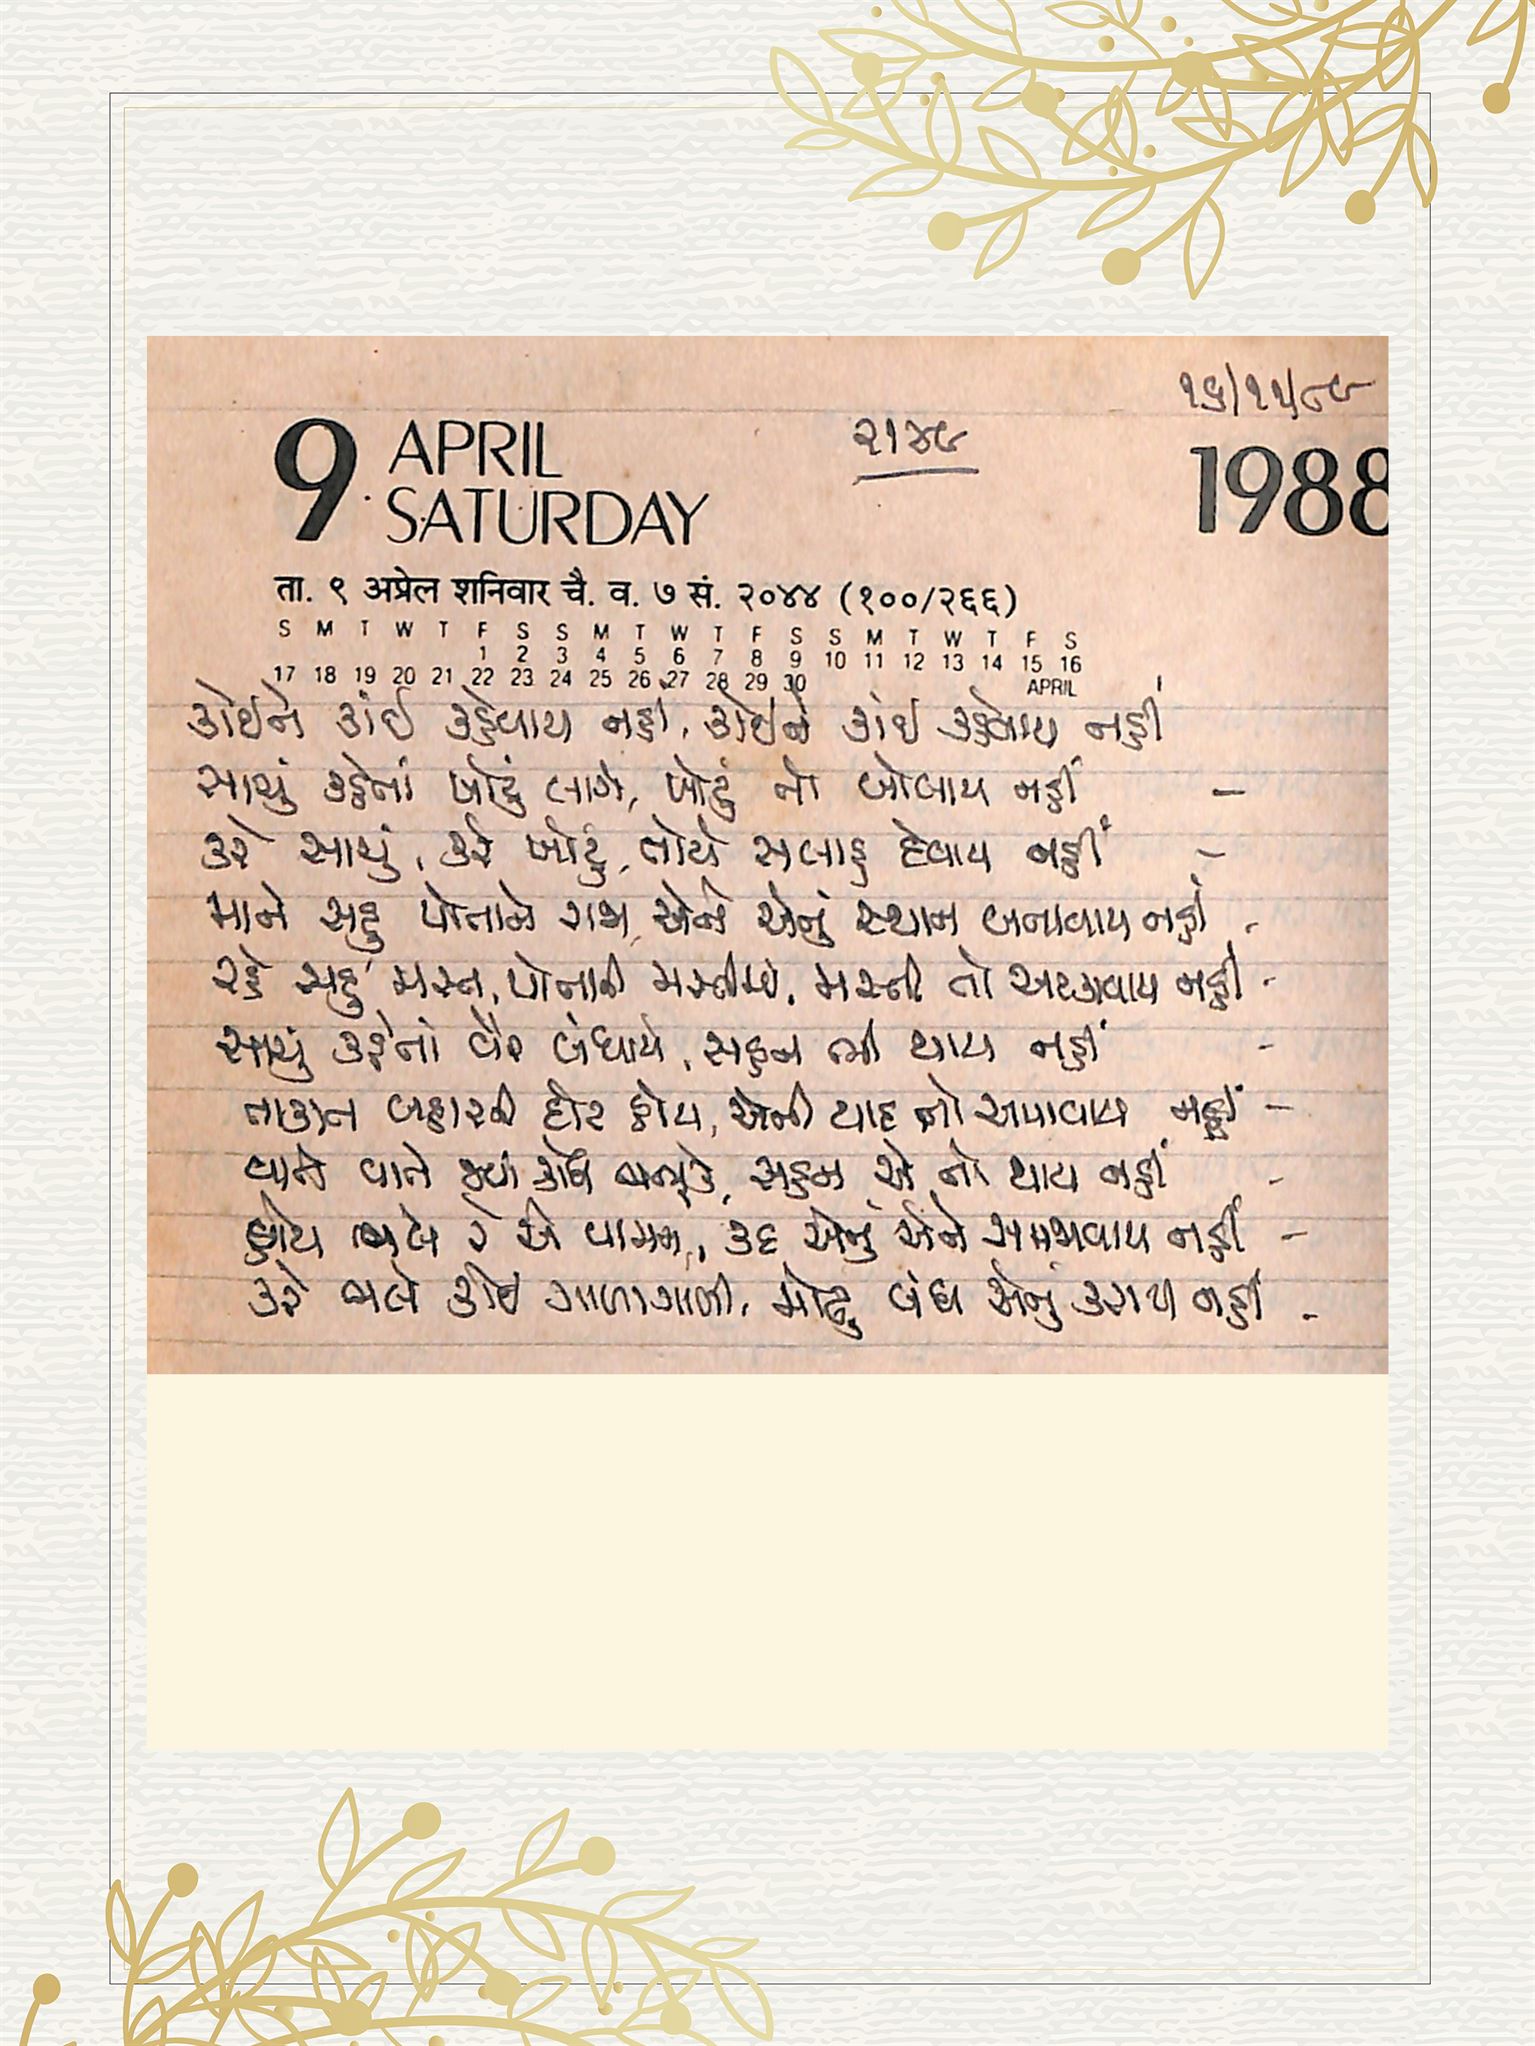 ૧૬/૧૧/૮૯
9 APRIL SATURDAY
૨૧૪૯
1988
ता. ९ अप्रेल शनिवार चै. व. ७ सं. २०४४ (१००/२६६)
S M T W T F S S M T W T F S S M T W T F S
1 2 3 4 5 6 7 8 9 10 11 12 13 14 15 16
17 18 19 20 21 22 23 24 25 26 27 28 29 30
APRIL
કોઈને કાંઈ કહેવાય નહીં, કોઈને કાંઈ કહેવાય નહીં
સાચું કહેતાં ખોટું લાગે, ખોટું તો બોલાય નહીં –
કરે સાચું, કરે ખોટું, તોયે સલાહ દેવાય નહીં –
માને સહુ પોતાને રાજા, એને એનું સ્થાન બનાવાય નહીં -
રહે સહુ મસ્ત, પોતાની મસ્તીમાં, મસ્તી તો અટકાવાય નહીં -
સાચું કહેતાં વૈર બંધાયે, સહન ના થાય નહીં -
તાકાત બહારની દોટ હોય, એની યાદ તો અપાવાય નહીં –
વાતે વાતે જ્યાં કોઈ ભભૂકે, સહન એ તો થાય નહીં -
હોય ભલે રે એ વામન, કદ એનું એને સમજાવાય નહીં –
કરે ભલે કોઈ ગાળાગાળી, મોઢું બંધ એનું કરાય નહીં -